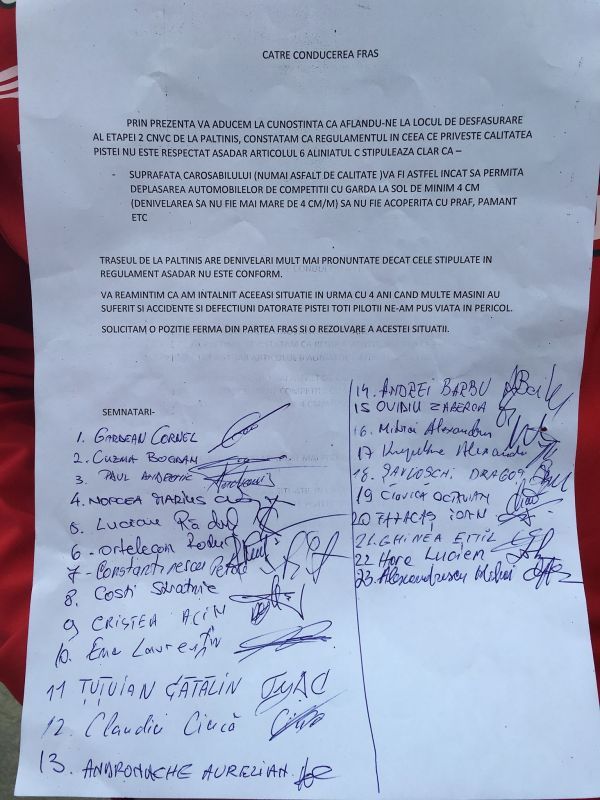 CATRE CONDUCEREA FRAS
PRIN PREZENTA VA ADUCEM LA CUNOSTINTA CA AFLANDU-NE LA LOCUL DE DESFASURARE
AL ETAPEI 2 CNVC DE LA PALTINIS, CONSTATAM CA REGULAMENTUL IN CEEA CE PRIVESTE CALITATEA
PISTEI NU ESTE RESPECTAT ASADAR ARTICOLUL 6 ALINIATUL C STIPULEAZA CLAR CA –
- SUPRAFATA CAROSABILULUI (NUMAI ASFALT DE CALITATE )VA FI ASTFEL INCAT SA PERMITA
DEPLASAREA AUTOMOBILELOR DE COMPETITII CU GARDA LA SOL DE MINIM 4 CM
(DENIVELAREA SA NU FIE MAI MARE DE 4 CM/M) SA NU FIE ACOPERITA CU PRAF, PAMANT
ETC
TRASEUL DE LA PALTINIS ARE DENIVELARI MULT MAI PRONUNTATE DECAT CELE STIPULATE IN
REGULAMENT ASADAR NU ESTE CONFORM.
VA REAMINTIM CA AM INTALNIT ACEEASI SITUATIE IN URMA CU 4 ANI CAND MULTE MASINI AU
SUFERIT SI ACCIDENTE SI DEFECTIUNI DATORATE PISTEI TOTI PILOTII NE-AM PUS VIATA IN PERICOL.
SOLICITAM O POZITIE FERMA DIN PARTEA FRAS SI O REZOLVARE A ACESTEI SITUATII.
SEMNATARI-
1. GARDEAN CORNEL
2. CUZMA BOGDAN
3. PAUL ANDRONIC
4. NOPCEA MARIUS
5. Lucian Radu
6 - Ortelecan Radu
7 - Constantinescu
8. Costi Stratnie
9 CRISTEA ALIN
10. Ene Laurențiu
11 ȚUȚUIAN CĂTĂLIN
12. Claudiu Ciucă
13. ANDRONACHE AURELIAN
14. ANDREI BARBU
15 OVIDIU
16. Mihai Alexandru
17 Alexandru
18. DRAGOȘ
19 CIOVICĂ OCTAVIAN
20 IOAN
21. GHINEA EMIL
22 Hora Lucian
23. Alexandrescu Mihai